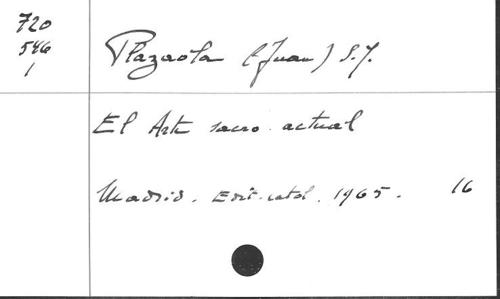 720
546
1
Plazaola (Juan) S.J.
El Arte sacro actual
Madrid. Edit. catol. 1965. 16